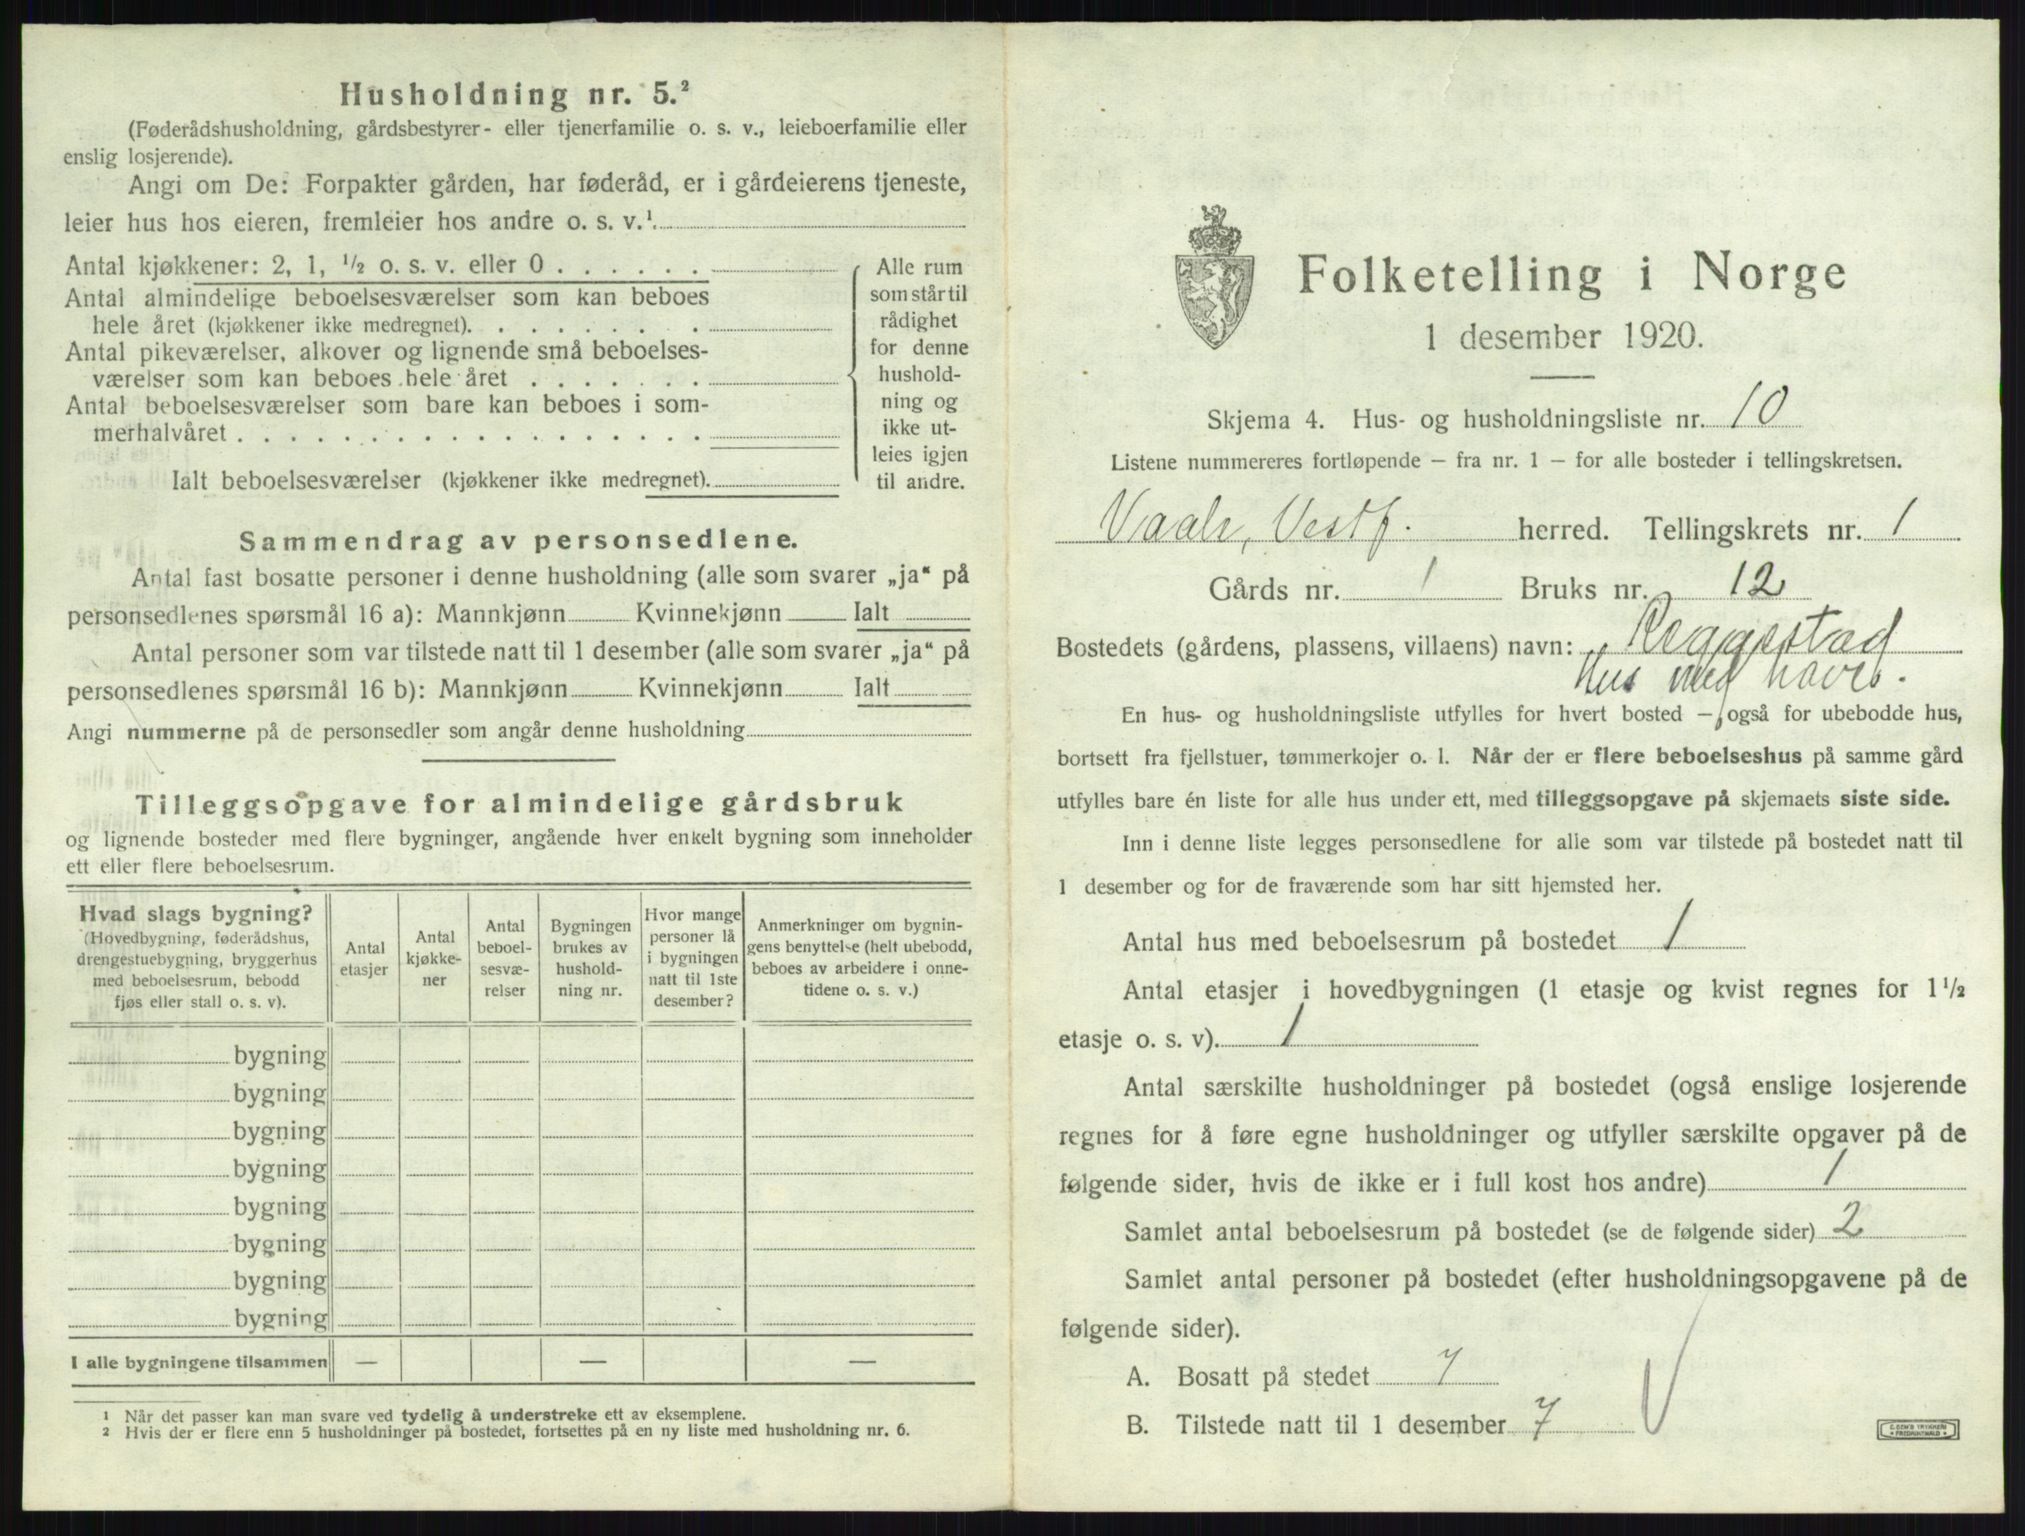 Husholdning nr. 5.²
(Føderådshusholdning, gårdsbestyrer- eller tjenerfamilie o. s. v., leieboerfamilie eller
enslig losjerende).
Angi om De: Forpakter gården, har føderåd, er i gårdeierens tjeneste,
leier hus hos eieren, fremleier hos andre o. s. v.¹
Antal kjøkkener: 2, 1, ½ o. s. v. eller 0
Antal almindelige beboelsesværelser som kan beboes
hele året (kjøkkener ikke medregnet).
Antal pikeværelser, alkover og lignende små beboelses-
værelser som kan beboes hele året
Antal beboelsesværelser som bare kan beboes i som-
merhalvåret
Ialt beboelsesværelser (kjøkkener ikke medregnet).
Alle rum
som står til
rådighet
for denne
hushold-
ning og
ikke ut-
leies igjen
til andre.
Sammendrag av personsedlene.
Antal fast bosatte personer i denne husholdning (alle som svarer „ja“ på
personsedlenes spørsmål 16 a): Mannkjønn Kvinnekjønn Ialt
Antal personer som var tilstede natt til 1 desember (alle som svarer „ja“ på
personsedlenes spørsmål 16 b): Mannkjønn Kvinnekjønn Ialt
Angi nummerne på de personsedler som angår denne husholdning
Tilleggsopgave for almindelige gårdsbruk
og lignende bosteder med flere bygninger, angående hver enkelt bygning som inneholder
ett eller flere beboelsesrum.
Hvad slags bygning?
(Hovedbygning, føderådshus,
drengestuebygning, bryggerhus
med beboelsesrum, bebodd
fjøs eller stall o. s. v).
Antal
etasjer
Antal
kjøkke-
ner
Antal
beboel-
sesvæ-
relser
Bygningen
brukes av
hushold-
ning nr.
Hvor mange
personer lå
i bygningen
natt til 1ste
desember?
Anmerkninger om bygnin-
gens benyttelse (helt ubebodd,
beboes av arbeidere i onne-
tidene o. s. v.)
bygning
bygning
bygning
bygning
bygning
bygning
bygning
bygning
I alle bygningene tilsammen — — —
¹ Når det passer kan man svare ved tydelig å understreke ett av eksemplene.
² Hvis der er flere enn 5 husholdninger på bostedet, fortsettes på en ny liste med husholdning nr. 6.
Folketelling i Norge
1 desember 1920.
Skjema 4. Hus- og husholdningsliste nr. 10
Listene nummereres fortløpende – fra nr. 1 – for alle bosteder i tellingskretsen.
Vaale, Vestf. herred. Tellingskrets nr. 1
Gårds nr. 1 Bruks nr. 12
Bostedets (gårdens, plassens, villaens) navn: Reggestad
Hus med have.
En hus- og husholdningsliste utfylles for hvert bosted – også for ubebodde hus,
bortsett fra fjellstuer, tømmerkojer o. l. Når der er flere beboelseshus på samme gård
utfylles bare én liste for alle hus under ett, med tilleggsopgave på skjemaets siste side.
Inn i denne liste legges personsedlene for alle som var tilstede på bostedet natt til
1 desember og for de fraværende som har sitt hjemsted her.
Antal hus med beboelsesrum på bostedet 1
Antal etasjer i hovedbygningen (1 etasje og kvist regnes for 1½
etasje o. s. v). 1
Antal særskilte husholdninger på bostedet (også enslige losjerende
regnes for å føre egne husholdninger og utfyller særskilte opgaver på de
følgende sider, hvis de ikke er i full kost hos andre) 1
Samlet antal beboelsesrum på bostedet (se de følgende sider) 2
Samlet antal personer på bostedet (efter husholdningsopgavene på de
følgende sider).
A. Bosatt på stedet 7
B. Tilstede natt til 1 desember 7